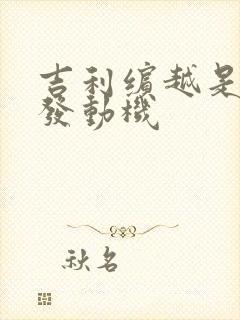 吉利缤越是
發動機
秋名